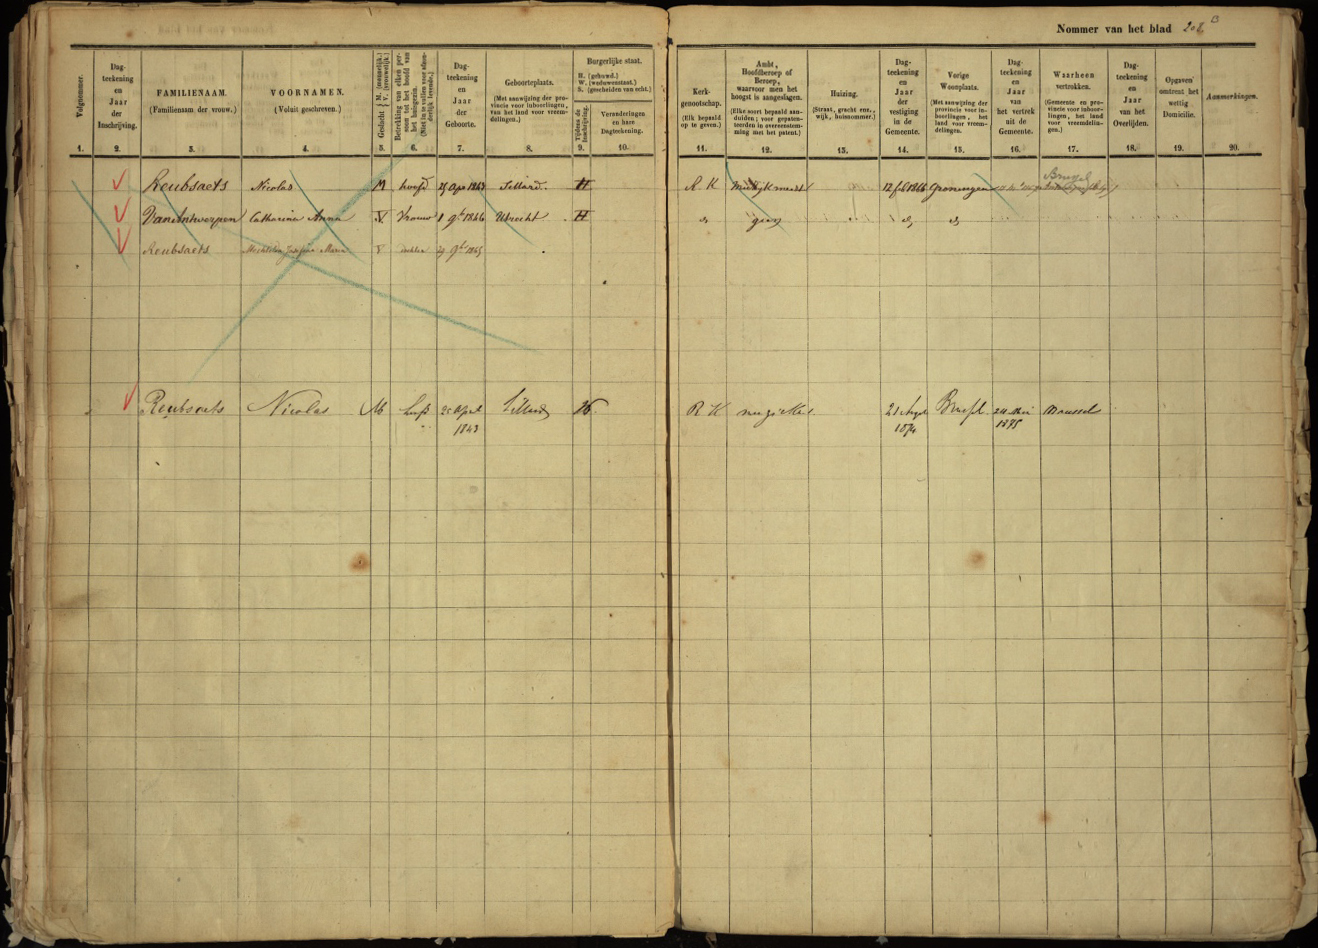 Nommer van het blad 208 B
Volgnommer.
Dag-
teekening
en
Jaar
der
Inschrijving.
FAMILIENAAM.
(Familienaam der vrouw.)
VOORNAMEN.
(Voluit geschreven.)
Geslacht { M. (mannelijk.) V. (vrouwelijk.)
Betrekking van elken per-
soon tot het hoofd van
het huisgezin.
Dag-
teekening
en
Jaar
der
Geboorte.
Geboorteplaats.
(Met aanwijzing der pro-
vincie voor inboorlingen,
van het land voor vreem-
delingen.)
Burgerlijke staat.
H. (gehuwd.)
W. (weduwenstaat.)
S. (gescheiden van echt.)
Tijdens de
Inschrijving.
Veranderingen
en hare
Dagteekening.
Kerk-
genootschap.
(Elk bepaald
op te geven.)
Ambt,
Hoofdberoep of
Beroep,
waarvoor men het
hoogst is aangeslagen.
(Elke soort bepaald aan-
duiden; voor gepaten-
teerden in overeenstem-
ming met het patent.)
Huizing.
(Straat, gracht enz.,
wijk, huisnommer.)
Dag-
teekening
en
Jaar
der
vestiging
in de
Gemeente.
Vorige
Woonplaats.
(Met aanwijzing der
provincie voor in-
boorlingen, het
land voor vreem-
delingen.)
Dag-
teekening
en
Jaar
van
het vertrek
uit de
Gemeente.
Waarheen
vertrokken.
(Gemeente en pro-
vincie voor inboor-
lingen, het land
voor vreemdelin-
gen.)
Dag-
teekening
en
Jaar
van het
Overlijden.
Opgaven
omtrent het
wettig
Domicilie.
Aanmerkingen.
1. 2. 3. 4. 5. 6. 7. 8. 9. 10. 11. 12. 13. 14. 15. 16. 17. 18. 19. 20.
Reubsaets Nicolas M hoofd 25 Apr 1843 Sittard. H R K Muzijkmeest 12 feb 1866 Groningen Brussel
Van Antwerpen Catharina Anna V Vrouw 1 9br 1846 Utrecht H d, geen d, d,
Reubsaets Josefina Maria V dochter 29 9br 1865
Reubsaets Nicolas M hoofd 25 April 1843 Sittard H R K muzieker 21 1874 Brussel 24 Mei 1875 Brussel